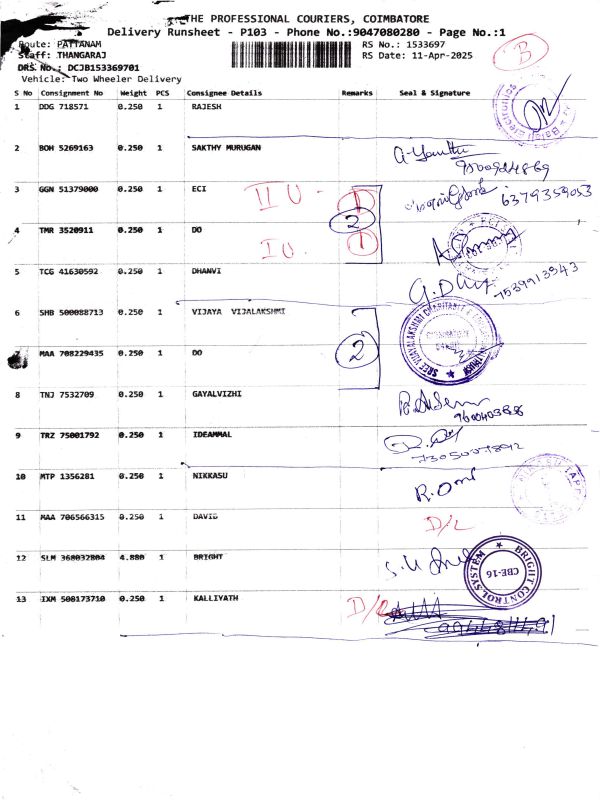 THE PROFESSIONAL COURIERS, COIMBATORE
Delivery Runsheet - P103 - Phone No.:9047080280 - Page No.:1
Route: PATTANAM
RS No.: 1533697
Staff: THANGARAJ
RS Date: 11-Apr-2025
DRS No.: DCJB153369701
Vehicle: Two Wheeler Delivery
B
S No Consignment No Weight PCS Consignee Details Remarks Seal & Signature
1 DDG 718571 0.250 1 RAJESH
2 BOH 5269163 0.250 1 SAKTHY MURUGAN
3 GGN 51379000 0.250 1 ECI II U - 1 6379359053
2
4 TMR 3520911 0.250 1 DO I U - 1
5 TCG 41630592 0.250 1 DHANVI 7539913943
6 SHB 500088713 0.250 1 VIJAYA VIJALAKSHMI
7 MAA 708229435 0.250 1 DO 2
8 TNJ 7532709 0.250 1 GAYALVIZHI
9 TRZ 75001792 0.250 1 IDEAMMAL
10 MTP 1356281 0.250 1 NIKKASU
11 MAA 706566315 0.250 1 DAVID D/L
12 SLM 368032804 4.880 1 BRIGHT BRIGHT CONTROL SYSTEM CBE-16
13 IXM 508173710 0.250 1 KALLIYATH